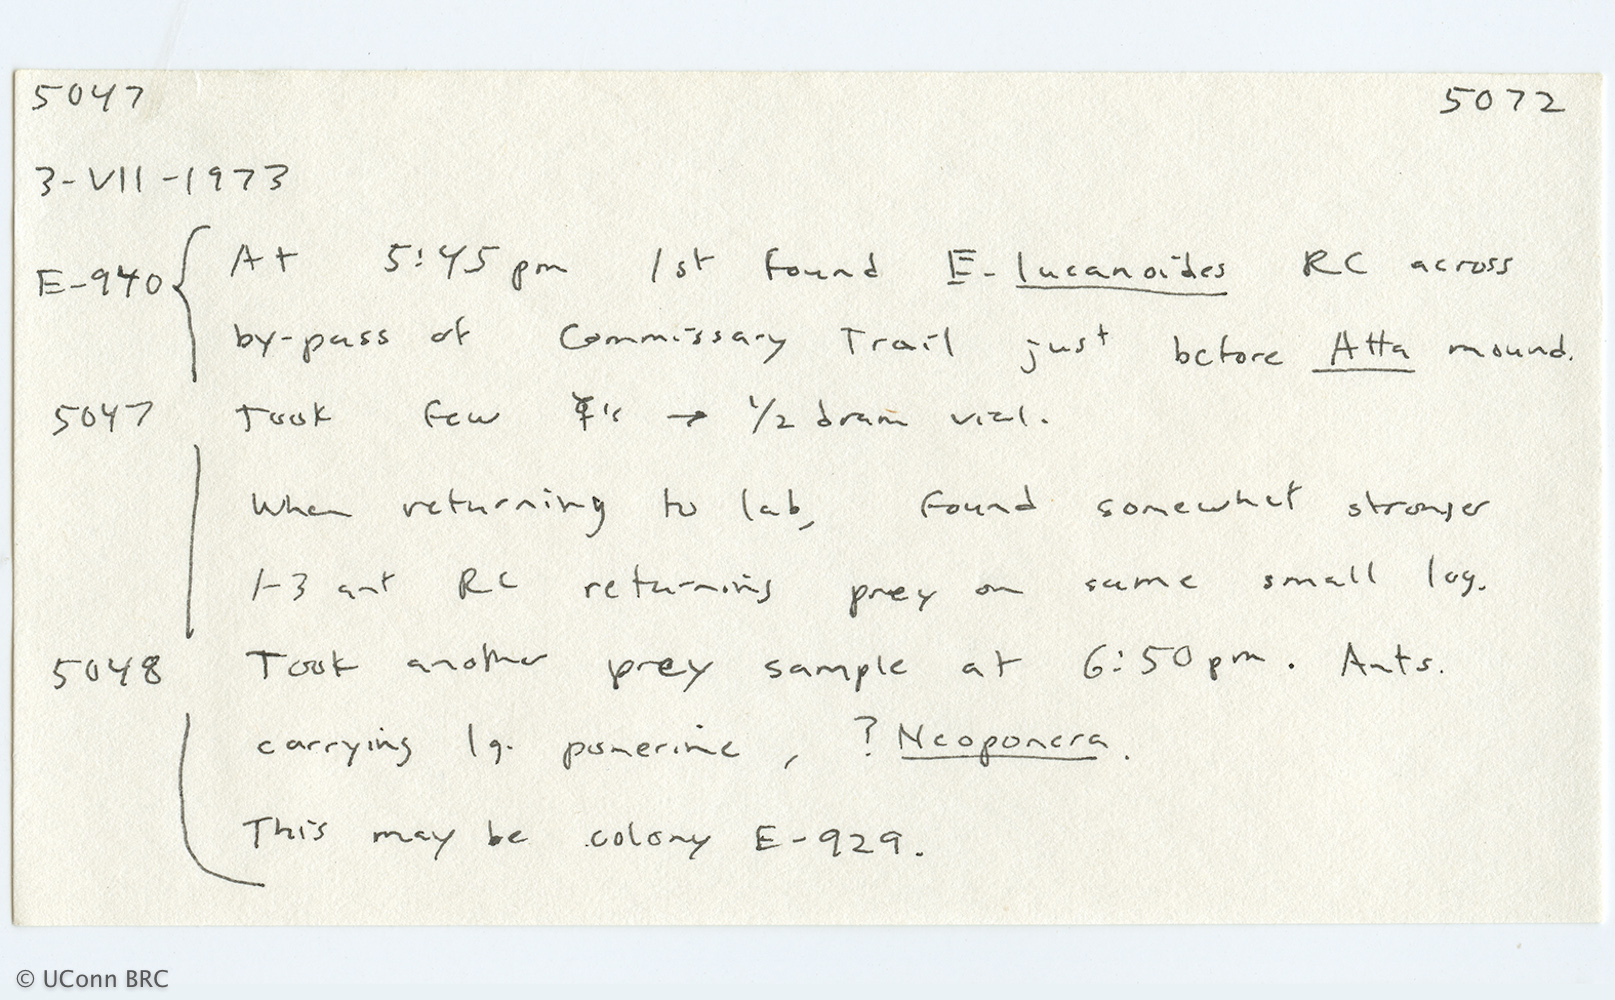 5047 5072
3-VII-1973
E-940 { At 5:45 pm 1st found E. lucanoides RC across
by-pass of Commissary Trail just before Atta mound.
5047 Took few ☿'s → 1/2 dram vial.
When returning to lab, found somewhat stronger
1-3 ant RC returning prey on same small log.
5048 Took another prey sample at 6:50 pm. Ants.
carrying lg. ponerine, ? Neoponera.
This may be colony E-929.
© UConn BRC